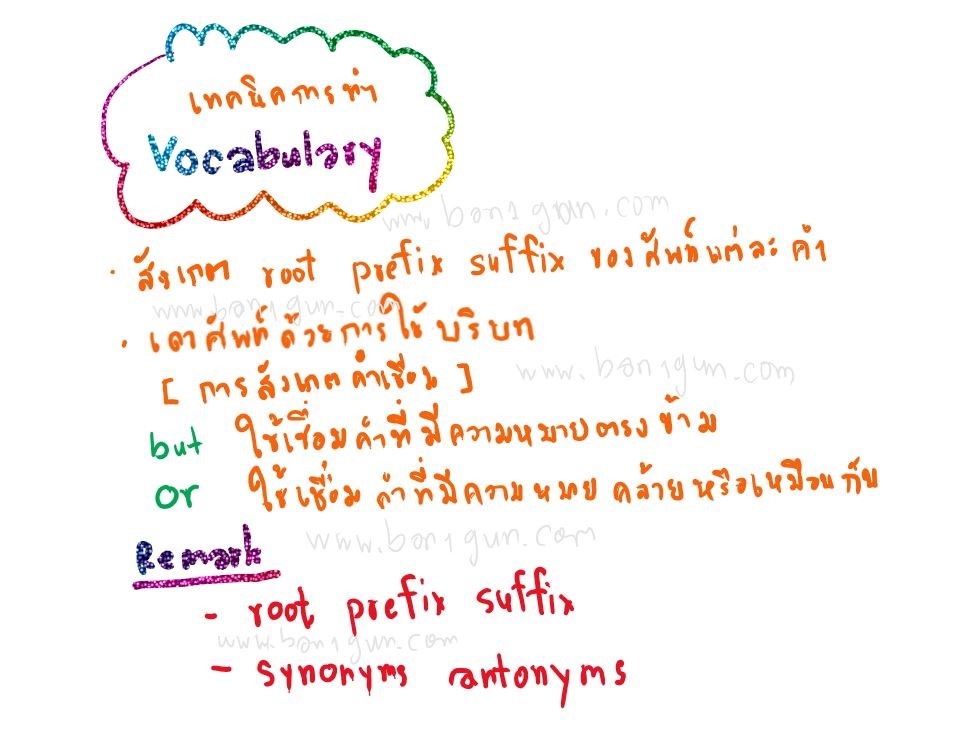 เทคนิคการทำ
Vocabulary
www.ban1gun.com
· สังเกต root prefix suffix ของศัพท์แต่ละคำ
www.ban1gun.com
· เดาศัพท์ด้วยการใช้บริบท
[ การสังเกตคำเชื่อม ]
www.ban1gun.com
but ใช้เชื่อมคำที่มีความหมายตรงข้าม
or ใช้เชื่อมคำที่มีความหมายคล้ายหรือเหมือนกัน
Remark
www.ban1gun.com
- root prefix suffix
www.ban1gun.com
- synonyms antonyms